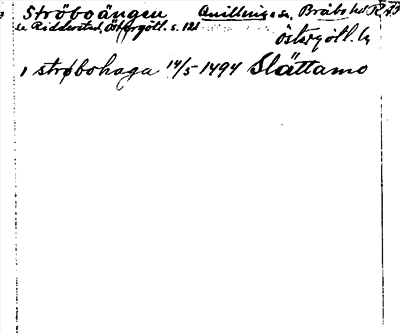 Ströboängen Quillinge sn. Bråbo hd RAB
se Ridderstad, Östergötl. s. 121
Östergötl. l.
1 strøbohaga 14/5 1494 Slättamo